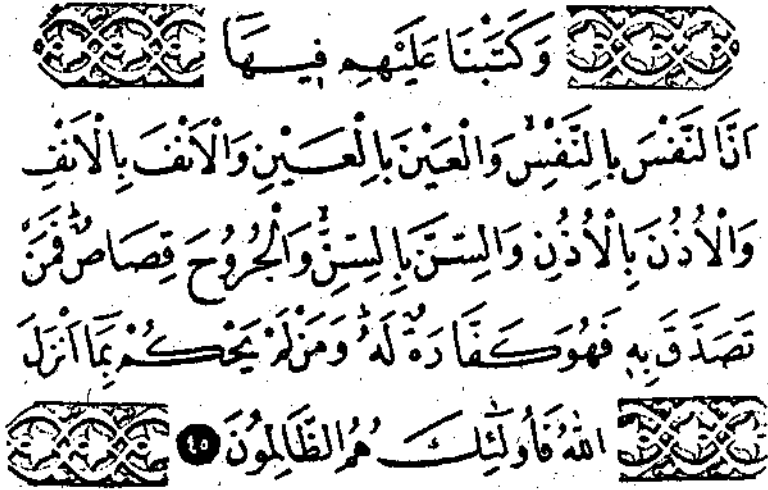 وَكَتَبْنَا عَلَيْهِمْ فِيهَا
اَنَّ النَّفْسَ بِالنَّفْسِۙ وَالْعَيْنَ بِالْعَيْنِ وَالْاَنْفَ بِالْاَنْفِ
وَالْاُذُنَ بِالْاُذُنِ وَالسِّنَّ بِالسِّنِّۙ وَالْجُرُوحَ قِصَاصٌۜ فَمَنْ
تَصَدَّقَ بِهٖ فَهُوَ كَفَّارَةٌ لَهُۜ وَمَنْ لَمْ يَحْكُمْ بِمَٓا اَنْزَلَ
اللّٰهُ فَاُو۬لٰٓئِكَ هُمُ الظَّالِمُونَ ٤٥